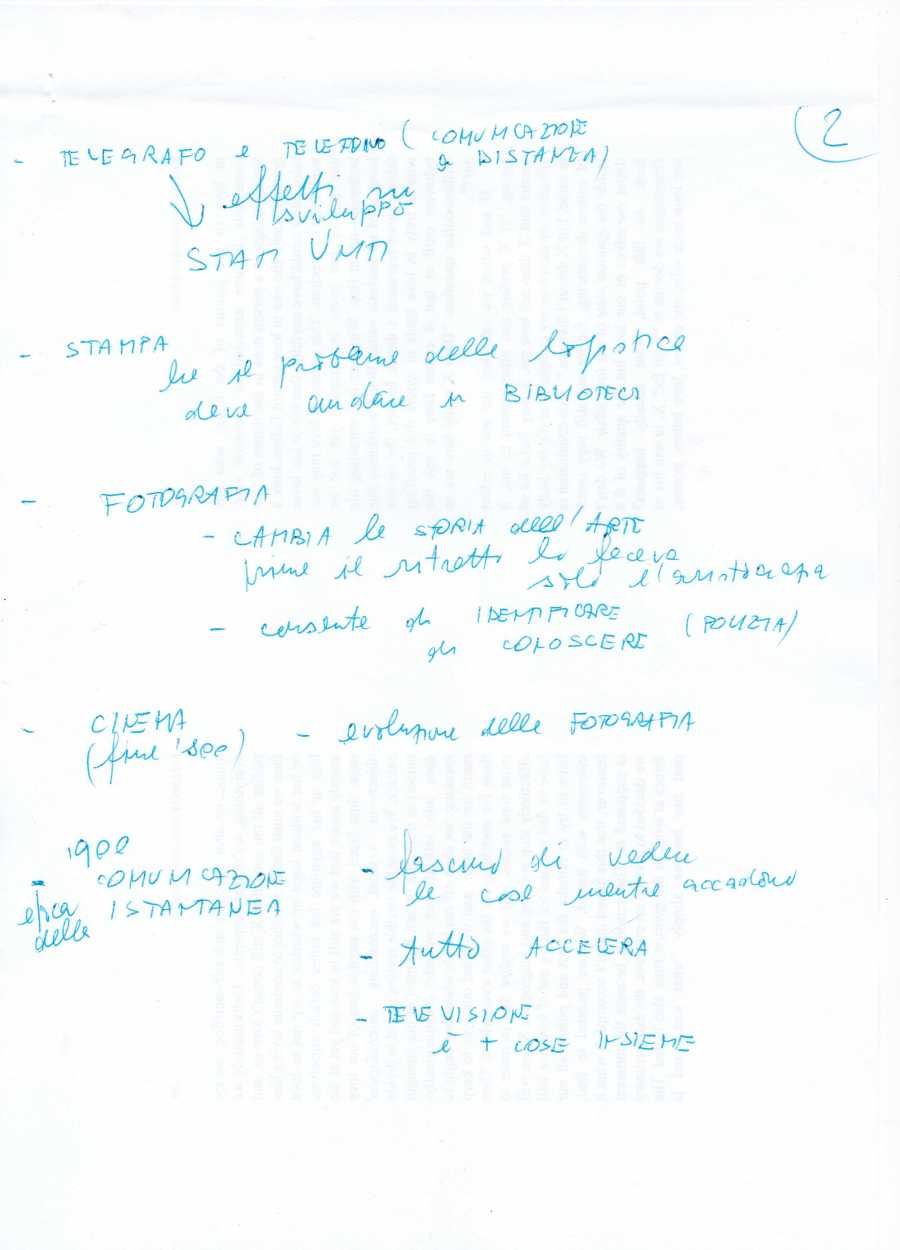 2
- TELEGRAFO e TELEFONO (COMUNICAZIONE
a DISTANZA)
effetti su
sviluppo
STATI UNITI
- STAMPA
ha il problema della logistica
deve andare in BIBLIOTECA
- FOTOGRAFIA
- CAMBIA la STORIA dell'ARTE
prima il ritratto lo faceva
solo l'aristocrazia
- consente di IDENTIFICARE
di CONOSCERE (POLIZIA)
- CINEMA
(fine '800) - evoluzione della FOTOGRAFIA
1900
- COMUNICAZIONE
epoca ISTANTANEA
della
- fascino di vedere
le cose mentre accadono
- tutto ACCELERA
- TELEVISIONE
è + COSE INSIEME